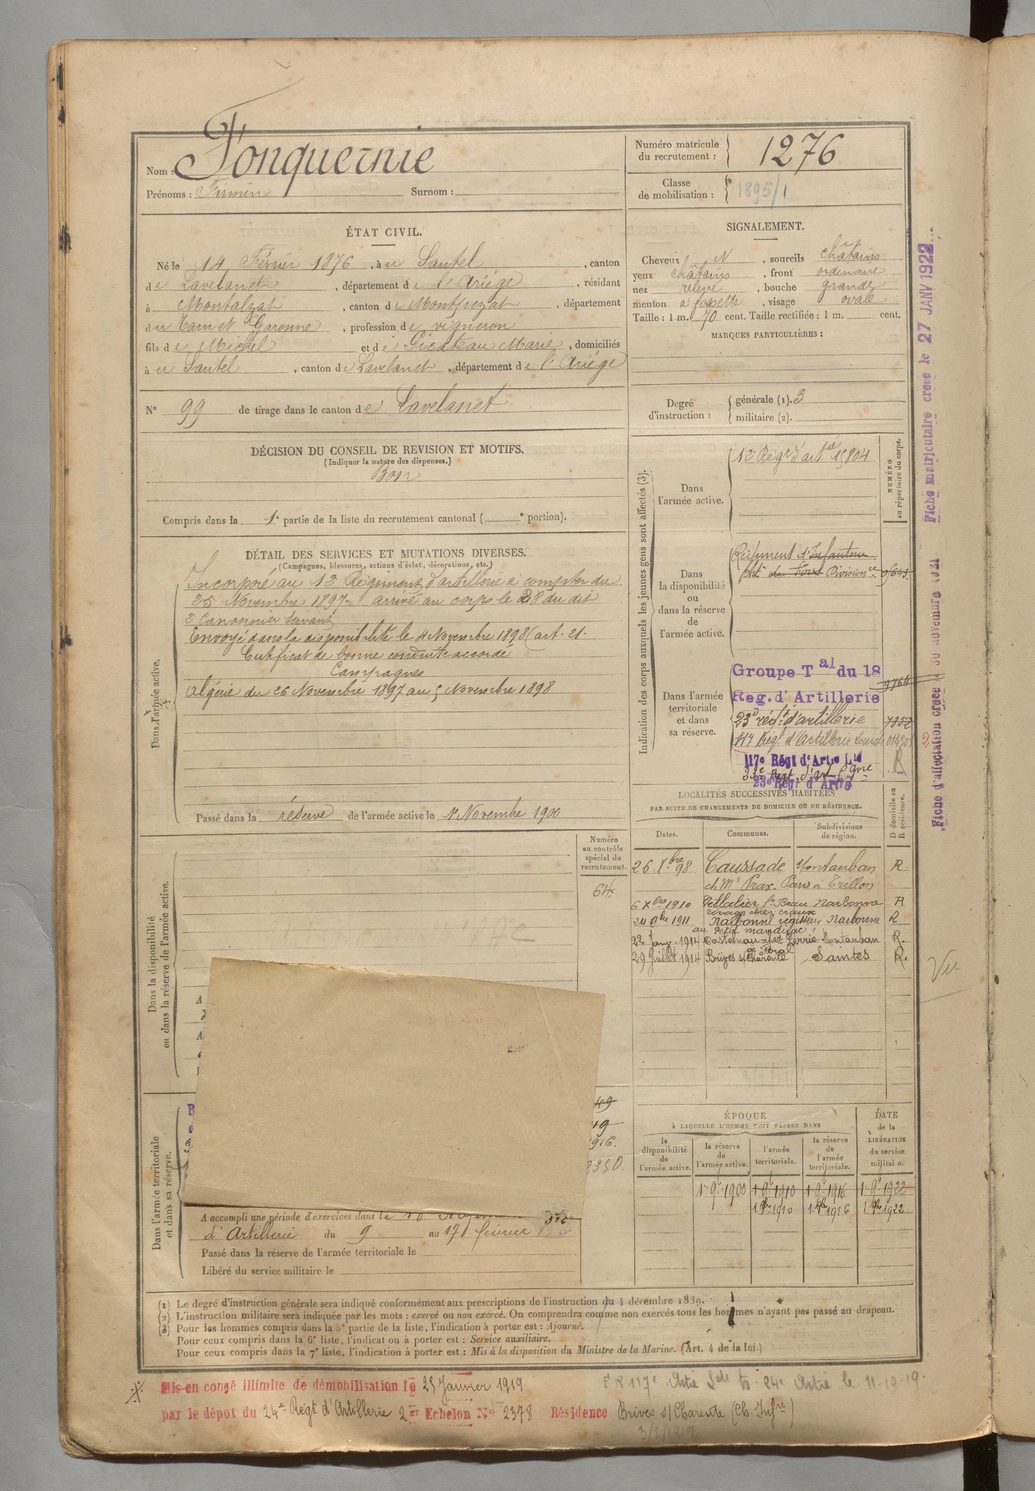 Nom : Fonquernie
Prénoms : Firmin Surnom :
Numéro matricule du recrutement : 1276
Classe de mobilisation : 1895/1
ÉTAT CIVIL.
Né le 14 Février 1876, à u Sautel, canton
de Lavelanet, département de l'Ariège, résidant
à Montalzat, canton de Montpezat, département
du Tarn et Garonne, profession de vigneron
fils de Michel et de Marie, domiciliés
à u Sautel, canton de Lavelanet, département de l'Ariège
N° 99 de tirage dans le canton de Lavelanet
SIGNALEMENT.
Cheveux N, sourcils châtains
yeux châtains, front ordinaire
nez relevé, bouche grande
menton à fossette, visage ovale
Taille : 1 m. 70 cent. Taille rectifiée : 1 m. cent.
MARQUES PARTICULIÈRES :
Degré d'instruction : générale (1). 3
militaire (2).
DÉCISION DU CONSEIL DE REVISION ET MOTIFS.
(Indiquer la nature des dispenses.)
Bon
Compris dans la 1e partie de la liste du recrutement cantonal ( e portion).
DÉTAIL DES SERVICES ET MUTATIONS DIVERSES.
(Campagnes, blessures, actions d'éclat, décorations, etc.)
Dans l'armée active.
Incorporé au 12 Régiment d'artillerie à compter du
25 Novembre 1897 arrivé au corps le 28 du dit
2 Canonnier Servant
Envoyé dans la disponibilité le 4 Novembre 1898 (art. 21.
Certificat de bonne conduite accordé
Campagnes
Algérie du 26 Novembre 1897 au 5 Novembre 1898
Passé dans la réserve de l'armée active le 1r Novembre 1900
Indication des corps auxquels les jeunes gens sont affectés (3).
NUMÉRO au répertoire du corps.
Dans l'armée active.
12 Régt d'artie 15804
Dans la disponibilité ou dans la réserve de l'armée active.
Régiment d'Infanterie
Dans l'armée territoriale et dans sa réserve.
Groupe Tal du 18
Reg. d'Artillerie
9760
23e régt d'artillerie
117 Régt d'Artillerie Lourde
117e Régt d'Artie Lde
23e Régt d'Artie
LOCALITÉS SUCCESSIVES HABITÉES
PAR SUITE DE CHANGEMENTS DE DOMICILE OU DE RÉSIDENCE.
Dates. Communes. Subdivisions de région. D domicile ou R résidence.
26 Xbre 98 Caussade Montauban R
6 Xbre 1910 Narbonne R
24 9bre 1911 Narbonne Narbonne R
22 Janv. 1914 Montauban R.
29 Juillet 1914 Brives s/ Charente Saintes R.
Dans la disponibilité ou dans la réserve de l'armée active.
Numéro au contrôle spécial du recrutement.
Dans l'armée territoriale et dans sa réserve.
A accompli une période d'exercices dans le
d'Artillerie du 9 au 17 février
Passé dans la réserve de l'armée territoriale le
Libéré du service militaire le
ÉPOQUE
À LAQUELLE L'HOMME DOIT PASSER DANS
DATE de la LIBÉRATION du service militaire.
la disponibilité de l'armée active. la réserve de l'armée active. l'armée territoriale. la réserve de l'armée territoriale.
1 9e 1900 1 9e 1910 1 9e 1916 1 9e 1922
1 Xbre 1910 1 Xbre 1916 1 Xbre 1922
(1) Le degré d'instruction générale sera indiqué conformément aux prescriptions de l'instruction du 4 décembre 1889.
(2) L'instruction militaire sera indiquée par les mots : exercé ou non exercé. On comprendra comme non exercés tous les hommes n'ayant pas passé au drapeau.
(3) Pour les hommes compris dans la 5e partie de la liste, l'indication à porter est : Ajourné.
Pour ceux compris dans la 6e liste, l'indication à porter est : Service auxiliaire.
Pour ceux compris dans la 7e liste, l'indication à porter est : Mis à la disposition du Ministre de la Marine. (Art. 4 de la loi.)
Mis en congé illimité de démobilisation le 25 Janvier 1919
par le dépôt du 24e Régt d'Artillerie 2e Echelon N° 2378 Résidence Brives s/ Charente (Ch. Infre)
Fiche matriculaire créée le 27 JANV 1922
Fiche d'affectation créée 30 novembre 1921
Vu